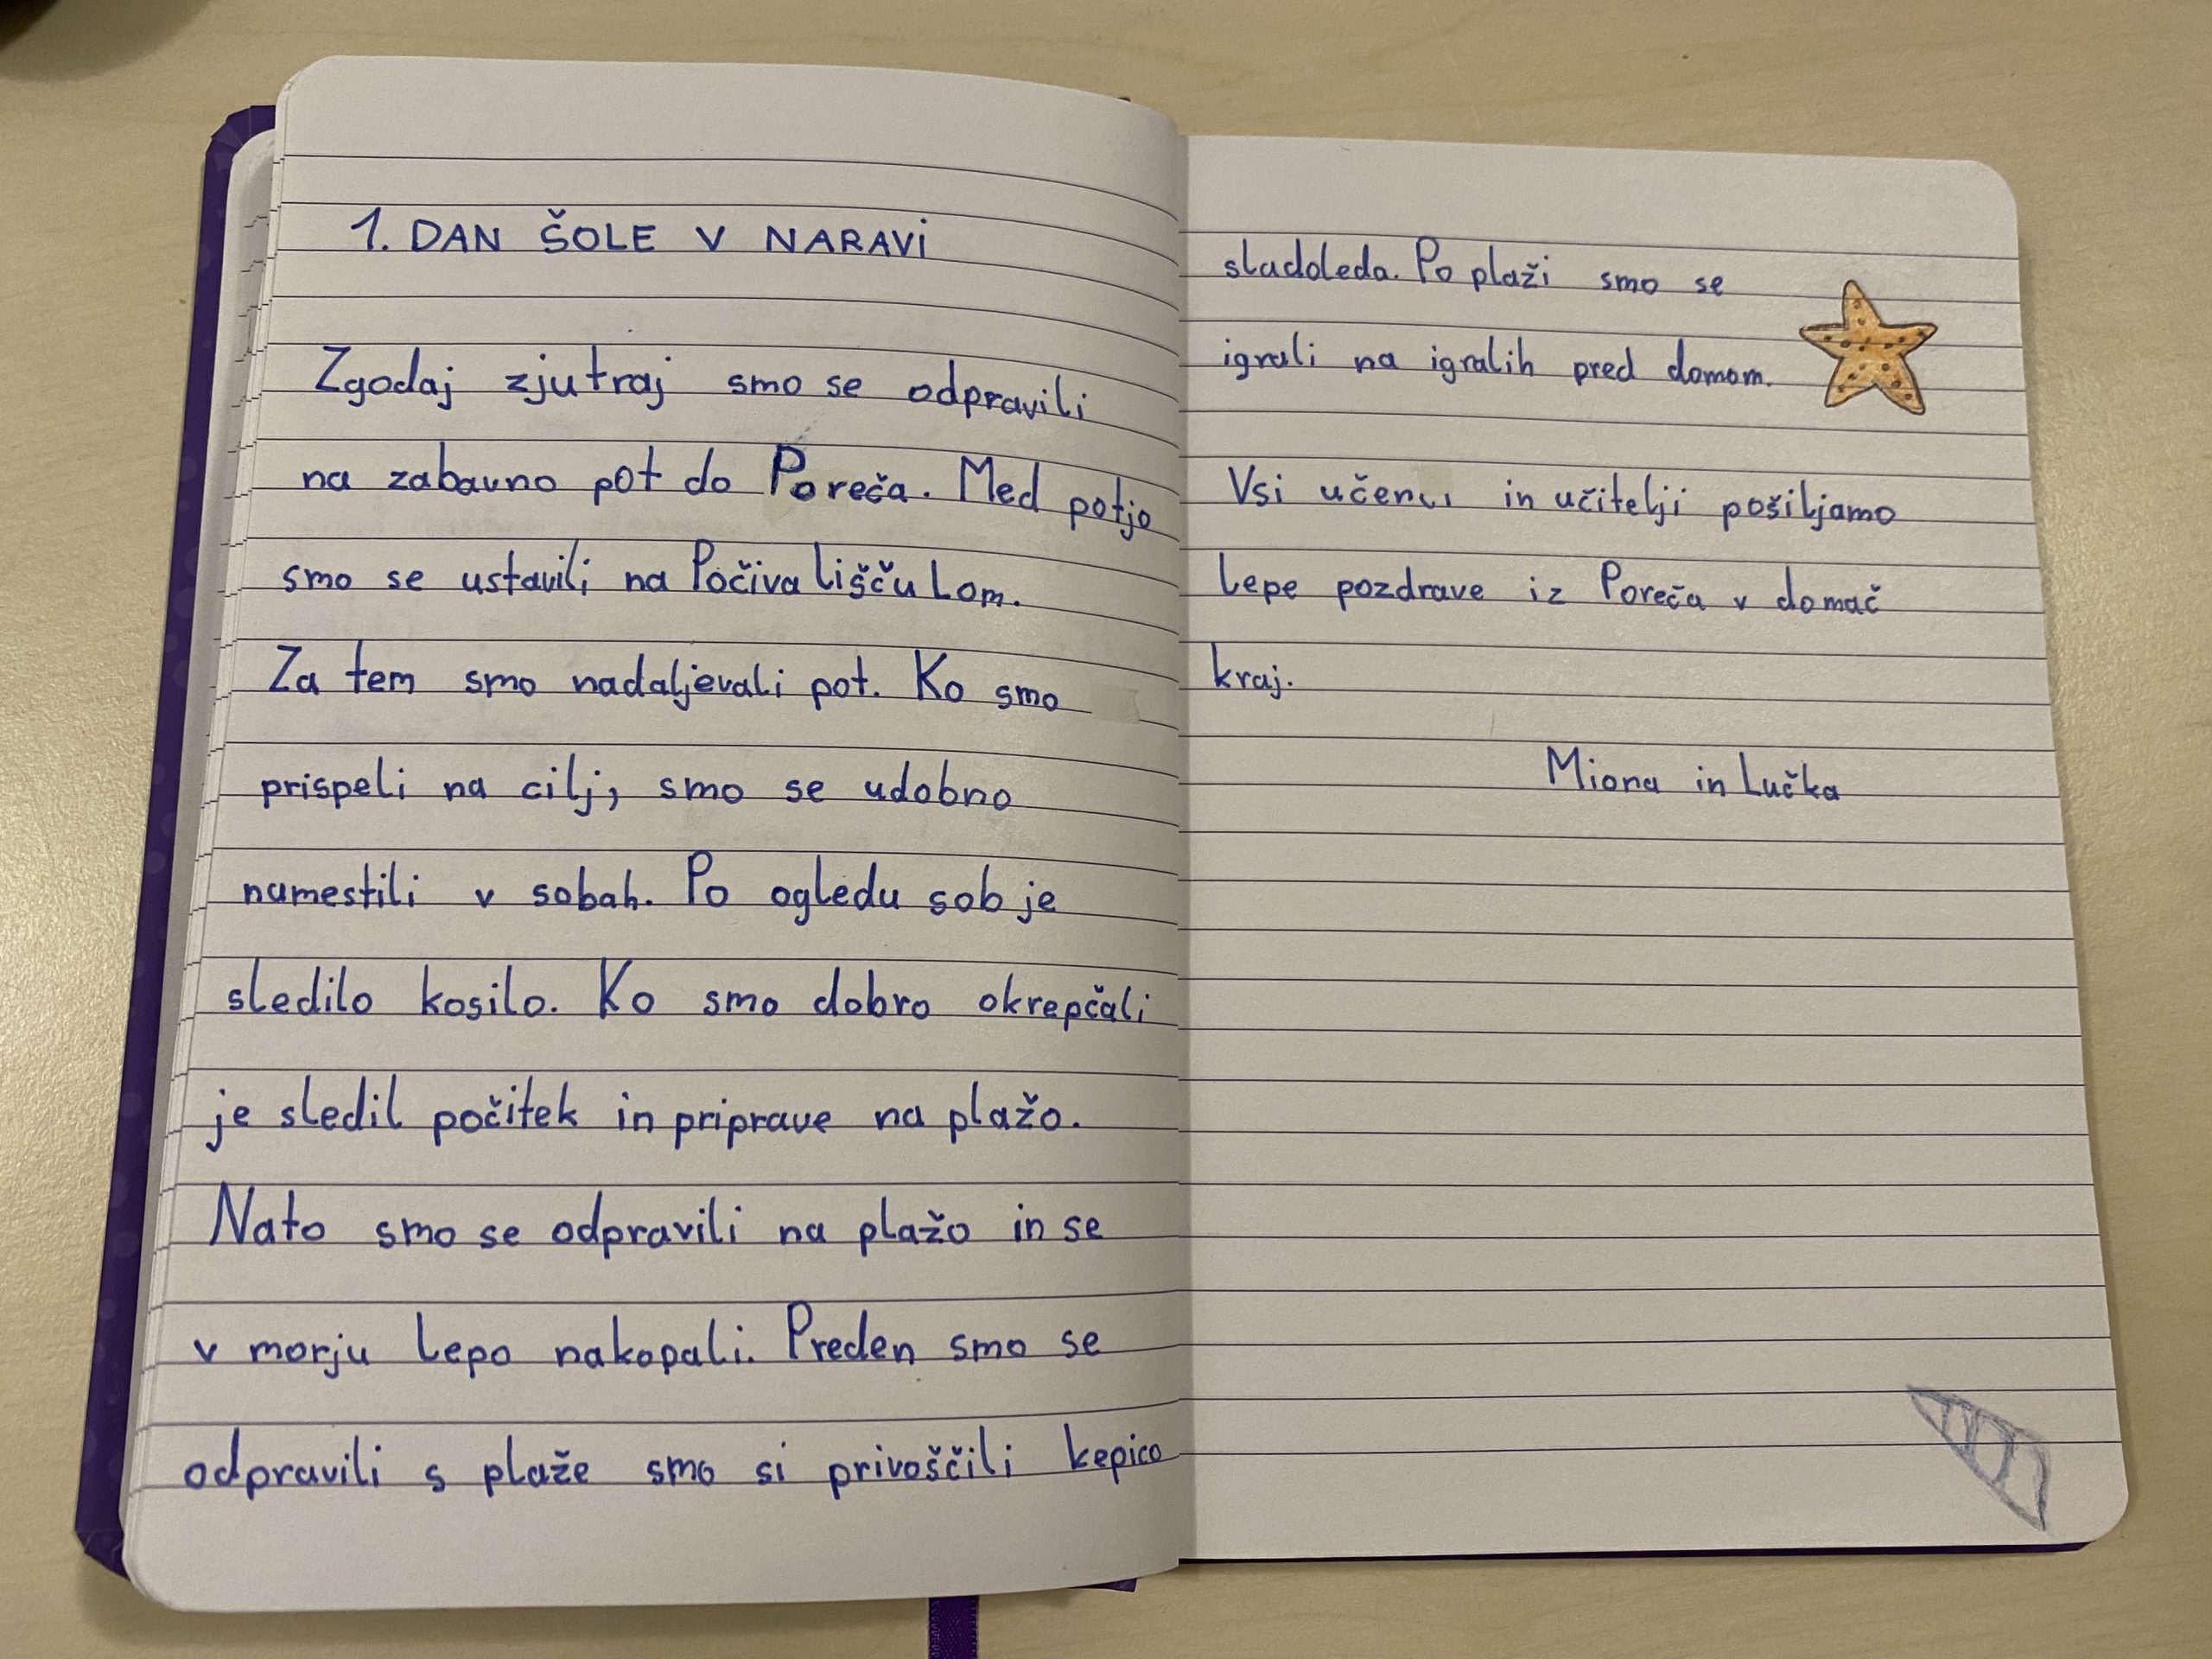 1. DAN ŠOLE V NARAVi
Zgodaj zjutraj smo se odpravili
na zabavno pot do Poreča. Med potjo
smo se ustavili na Počivališču Lom.
Za tem smo nadaljevali pot. Ko smo
prispeli na cilj, smo se udobno
namestili v sobah. Po ogledu sob je
sledilo kosilo. Ko smo dobro okrepčali
je sledil počitek in priprave na plažo.
Nato smo se odpravili na plažo in se
v morju lepo nakopali. Preden smo se
odpravili s plaže smo si privoščili kepico
sladoleda. Po plaži smo se
igrali na igralih pred domom.
Vsi učenci in učitelji pošiljamo
lepe pozdrave iz Poreča v domač
kraj.
Miona in Lučka